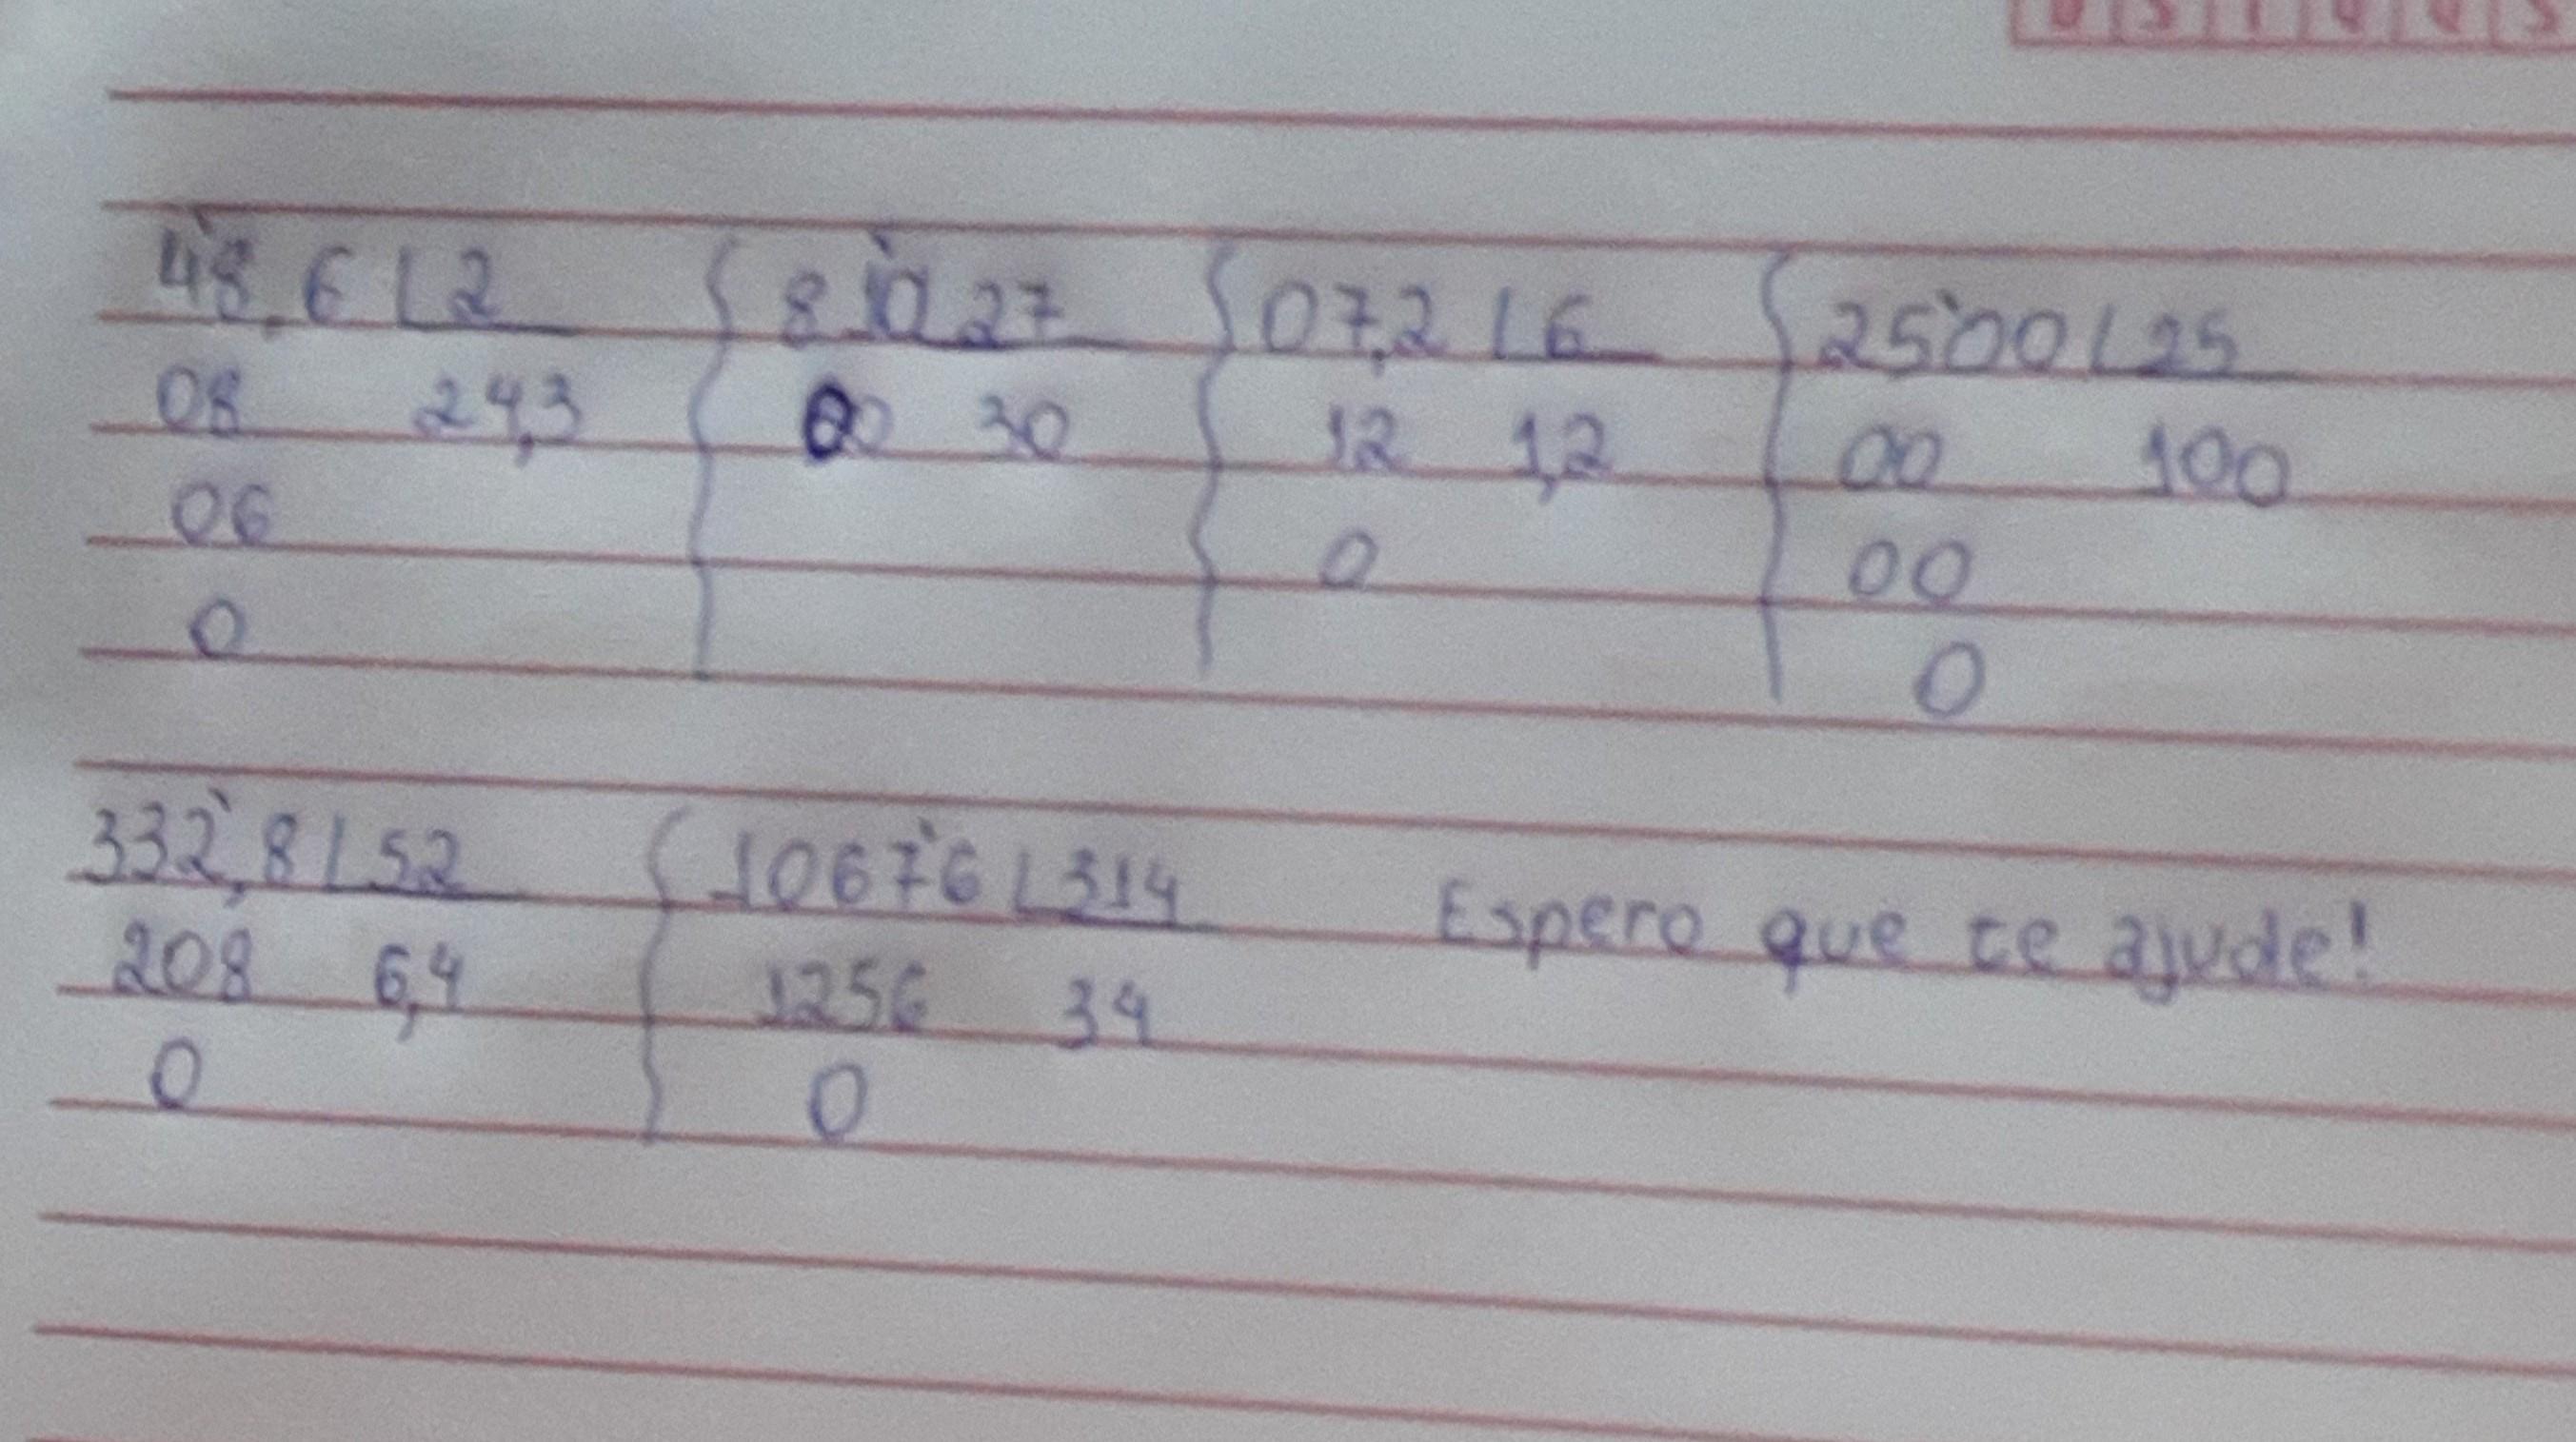 48,6 | 2 810 27 07,2 | 6 2500 | 25
08 24,3 00 30 12 1,2 00 100
06 0 00
0 0
332,8 | 52 10676 | 314 Espero que te ajude!
208 6,4 1256 34
0 0